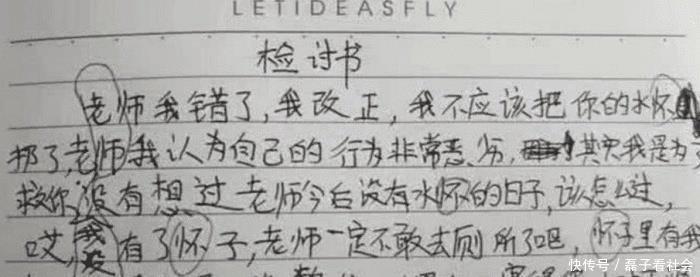 LETIDEASFLY
检讨书
老师我错了,我改正,我不应该把你的水怀
扔了,老师我认为自己的行为非常恶劣,其实我是为了
救你,没有想过老师今后没有水怀的日子,该怎么过,
哎,我没有了怀子,老师一定不敢去厕所了吧,怀子里有我
快传号/磊子看社会